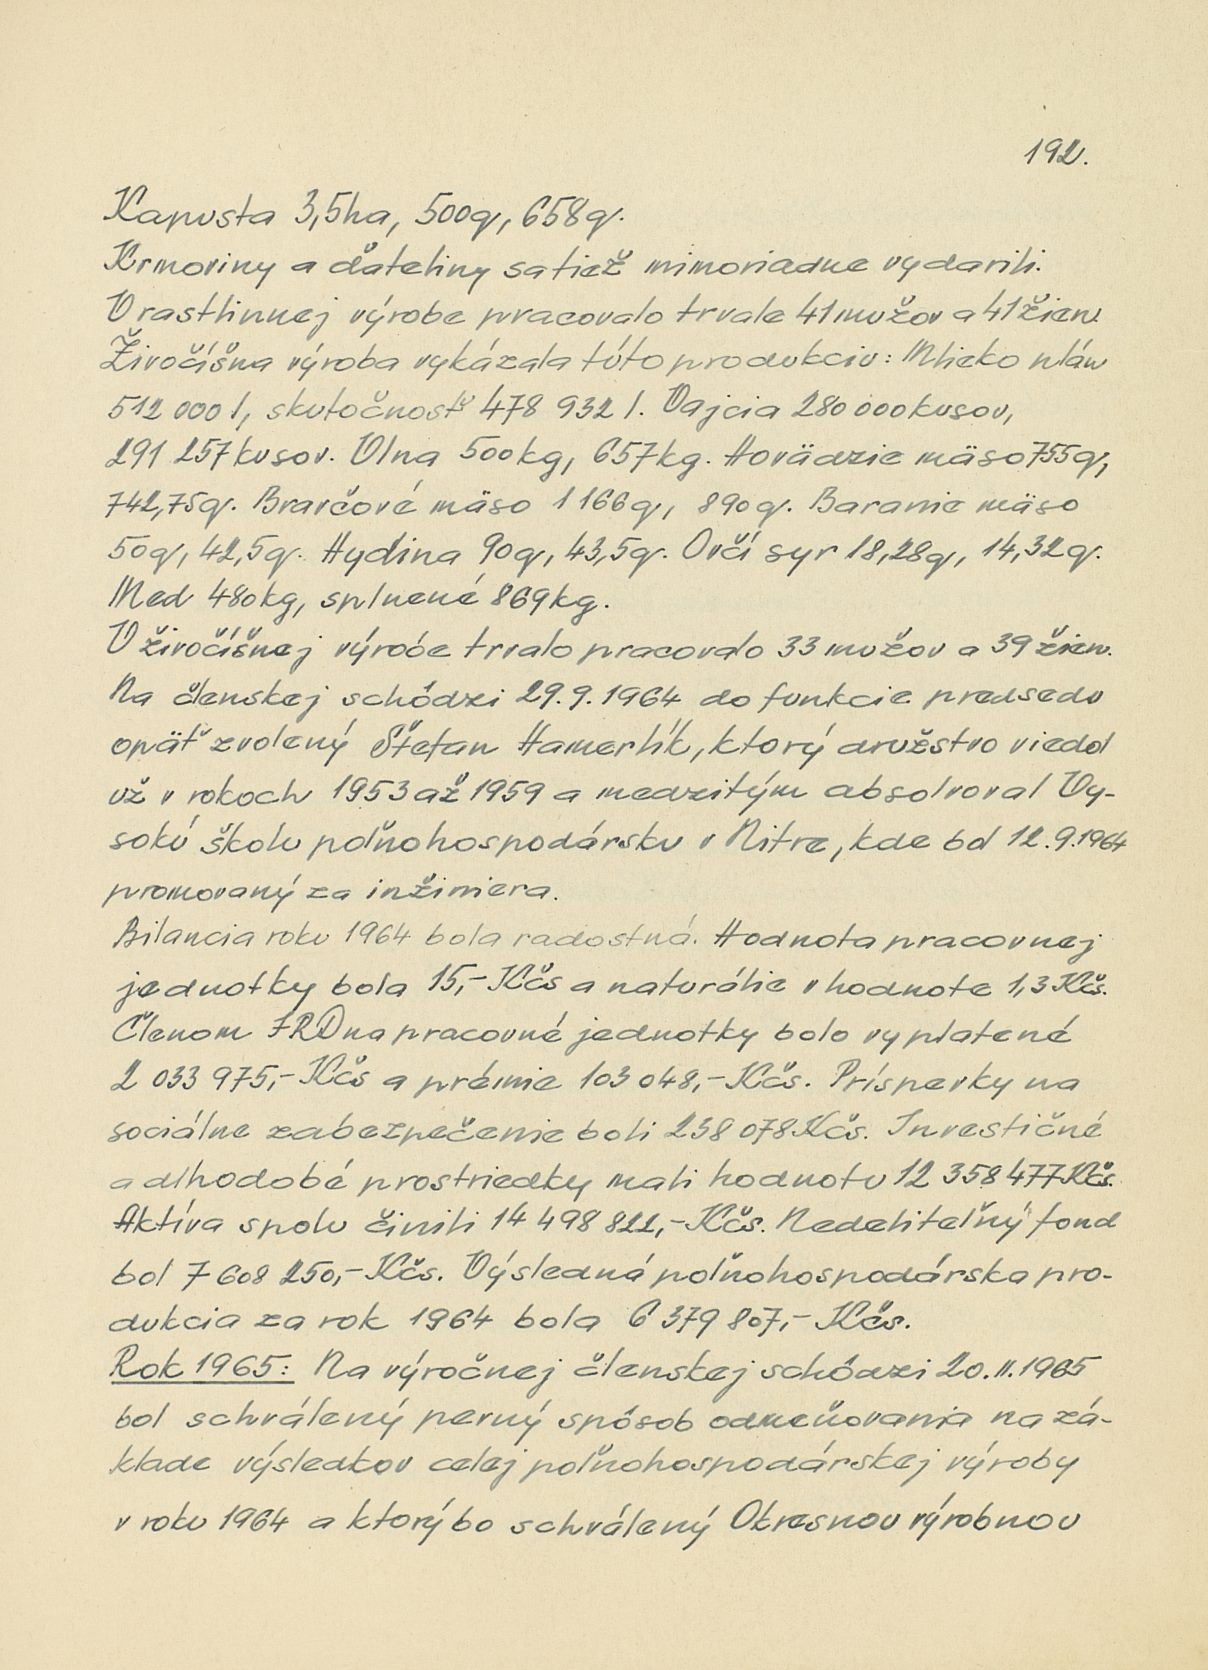 192.
Kapusta 3,5ha, 500q, 658q.
Krmoviny a ďateliny sa tiež mimoriadne vydarili.
V rastlinnej výrobe pracovalo trvale 41 mužov a 41 žien.
Živočíšna výroba vykázala túto produkciu: Mlieko plán
512 000 l, skutočnosť 478 932 l. Vajcia 280 000 kusov,
291 257 kusov. Vlna 500 kg, 657 kg. Hovädzie mäso 755q,
742,75q. Bravčové mäso 1 166q, 890q. Baranie mäso
50q, 42,5q. Hydina 90q, 43,5q. Ovčí syr 18,28q, 14,32q.
Med 480kg, splnené 869kg.
V živočíšnej výrobe trvalo pracovalo 33 mužov a 39 žien.
Na členskej schôdzi 29.9.1964 do funkcie predsedu
opäť zvolený Štefan Hamerlík, ktorý družstvo viedol
už v rokoch 1953 až 1959 a medzitým absolvoval Vy-
sokú školu poľnohospodársku v Nitre, kde bol 12.9.1964
promovaný za inžiniera.
Bilancia roku 1964 bola radostná. Hodnota pracovnej
jednotky bola 15,- Kčs a naturálie v hodnote 1,3 Kčs.
Členom JRD na pracovné jednotky bolo vyplatené
2 033 975,- Kčs a prémie 103 048,- Kčs. Príspevky na
sociálne zabezpečenie boli 238 078 Kčs. Investičné
a dlhodobé prostriedky mali hodnotu 12 358 477 Kčs.
Aktíva spolu činili 14 498 822,- Kčs. Nedeliteľný fond
bol 7 608 250,- Kčs. Výsledná poľnohospodárska pro-
dukcia za rok 1964 bola 6 379 807,- Kčs.
Rok 1965: Na výročnej členskej schôdzi 20.II.1965
bol schválený pevný spôsob odmeňovania na zá-
klade výsledkov celej poľnohospodárskej výroby
v roku 1964 a ktorý bo schválený Okresnou výrobnou